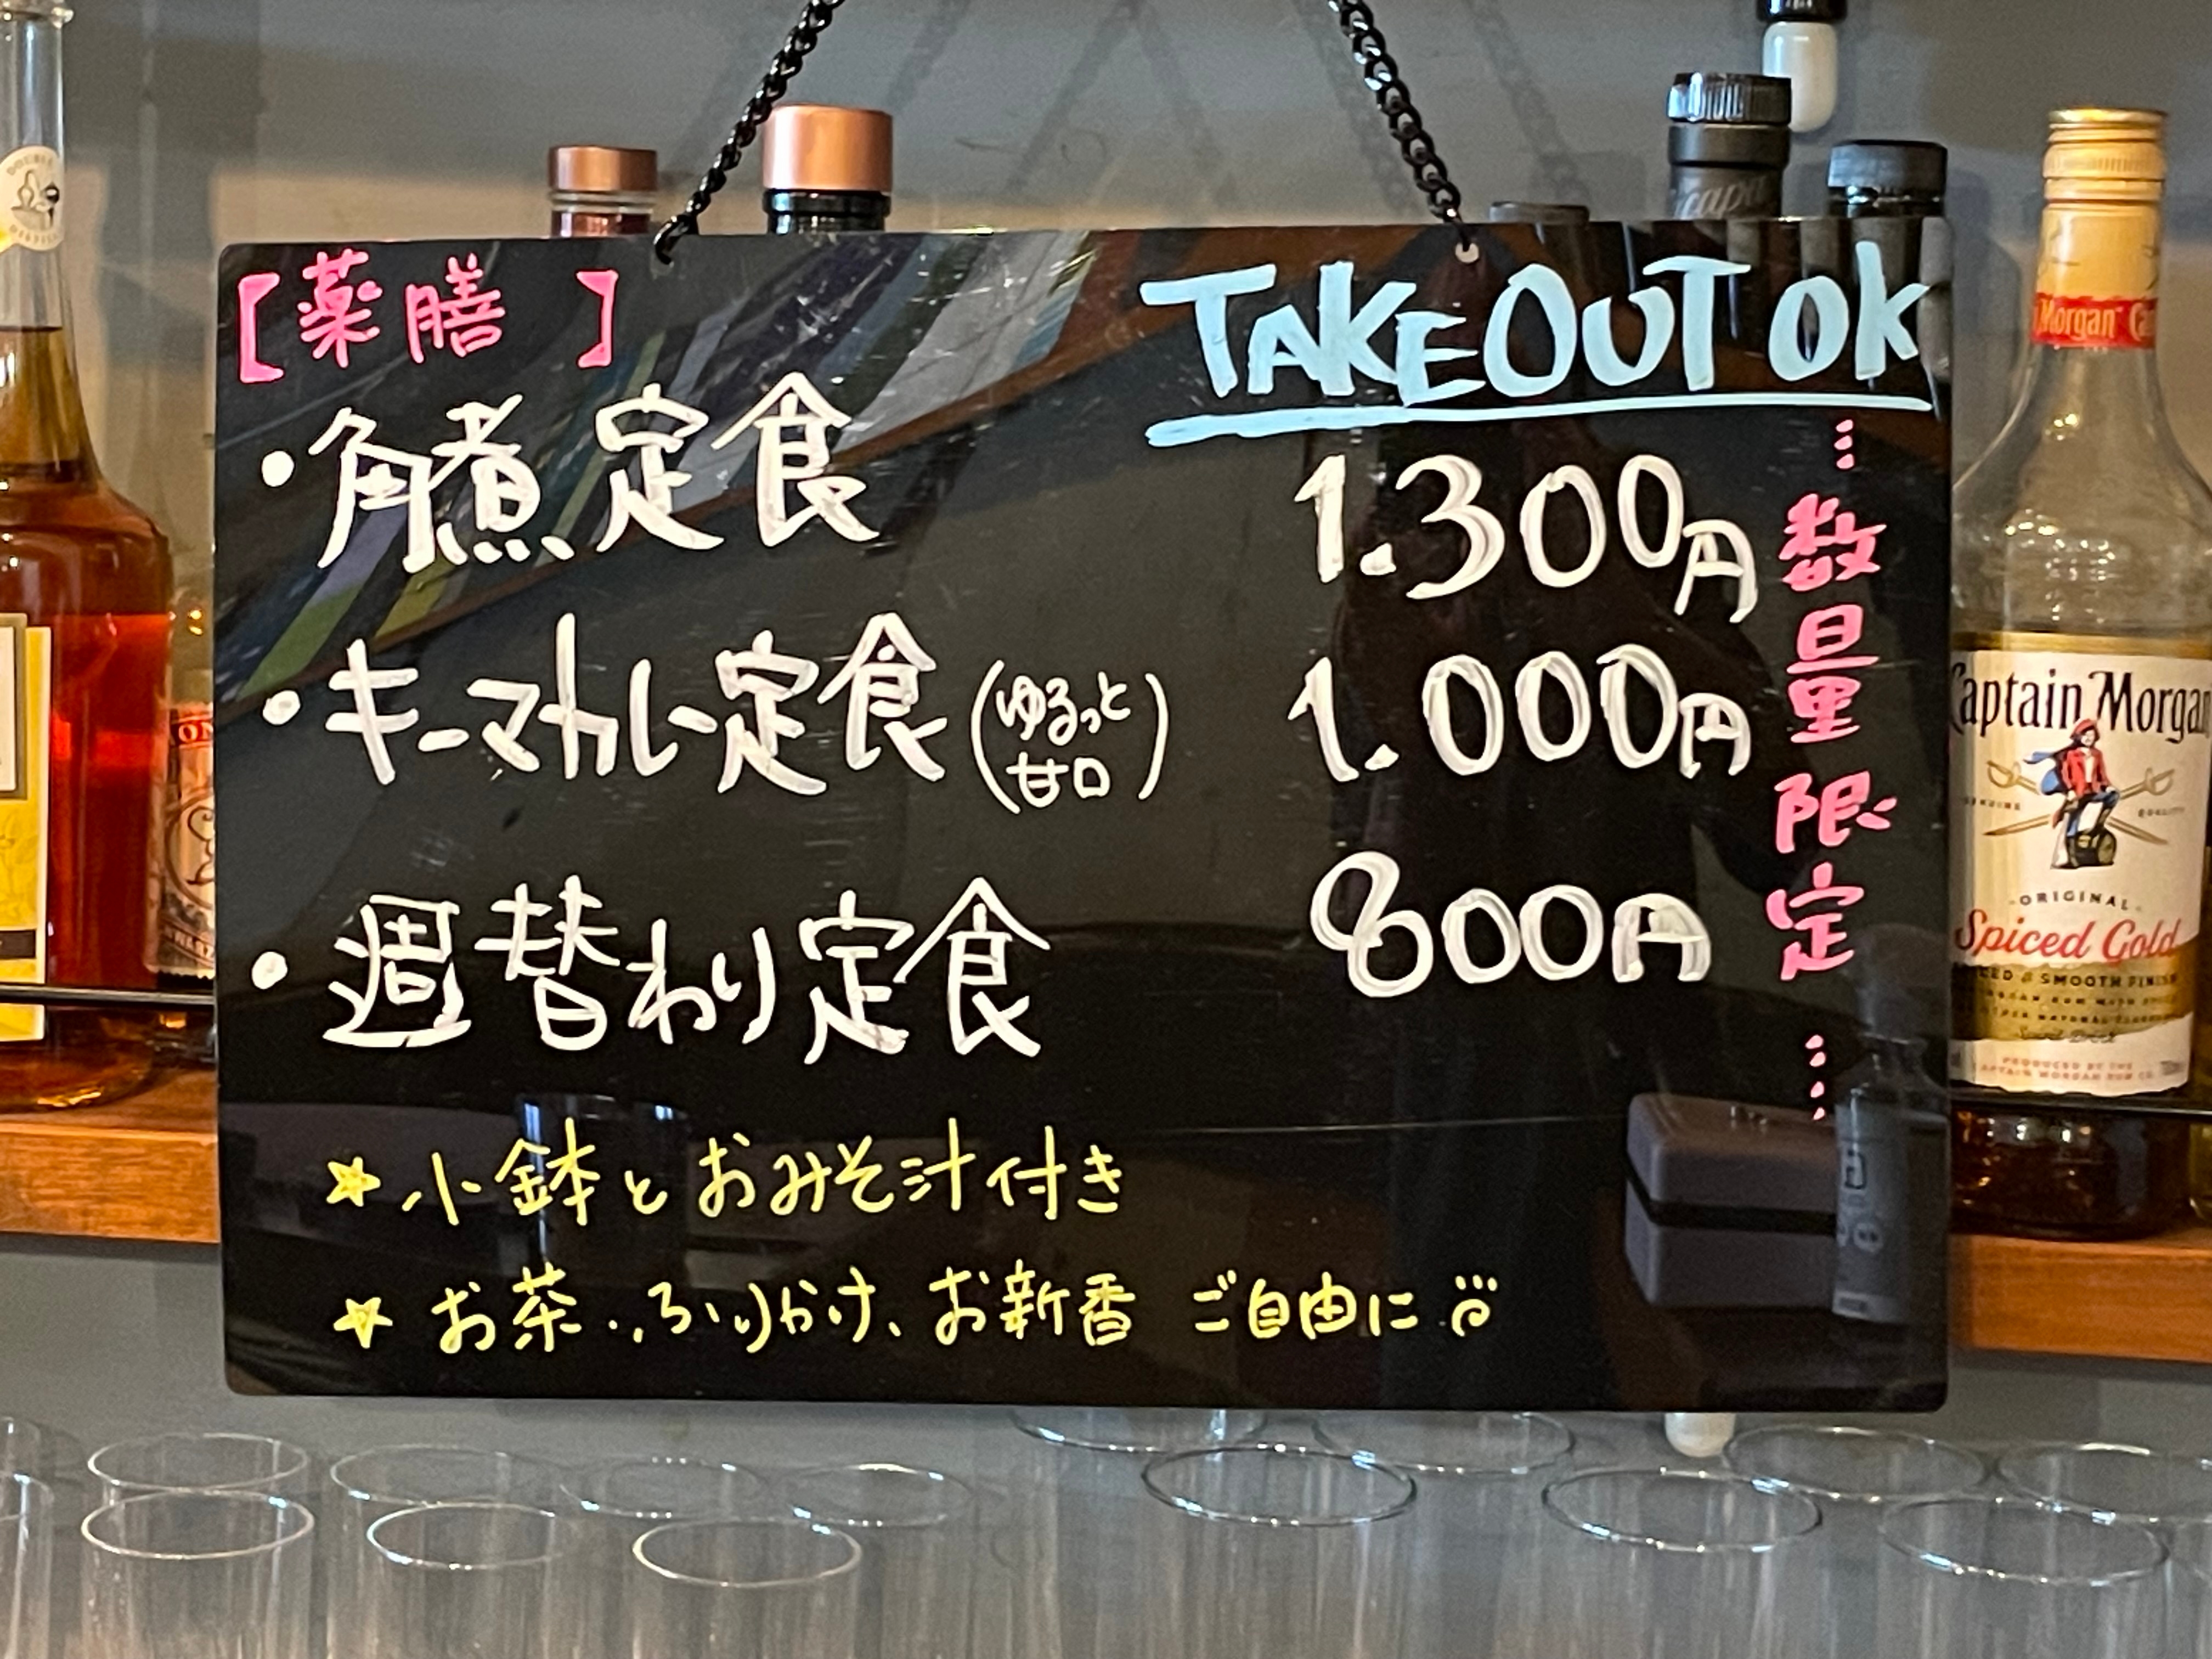 【薬膳　】
TAKEOUT OK
・角煮定食　1.300円
・キーマカレー定食(ゆるっと甘口)　1.000円
・週替わり定食　800円
…数量限定…
☆小鉢とおみそ汁付き
☆お茶、ふりかけ、お新香 ご自由に
Morgan
Captain Morgan
GENUINE QUALITY
ORIGINAL
Spiced Gold
SMOOTH FINISH
PRODUCED BY THE
CAPTAIN MORGAN RUM CO.